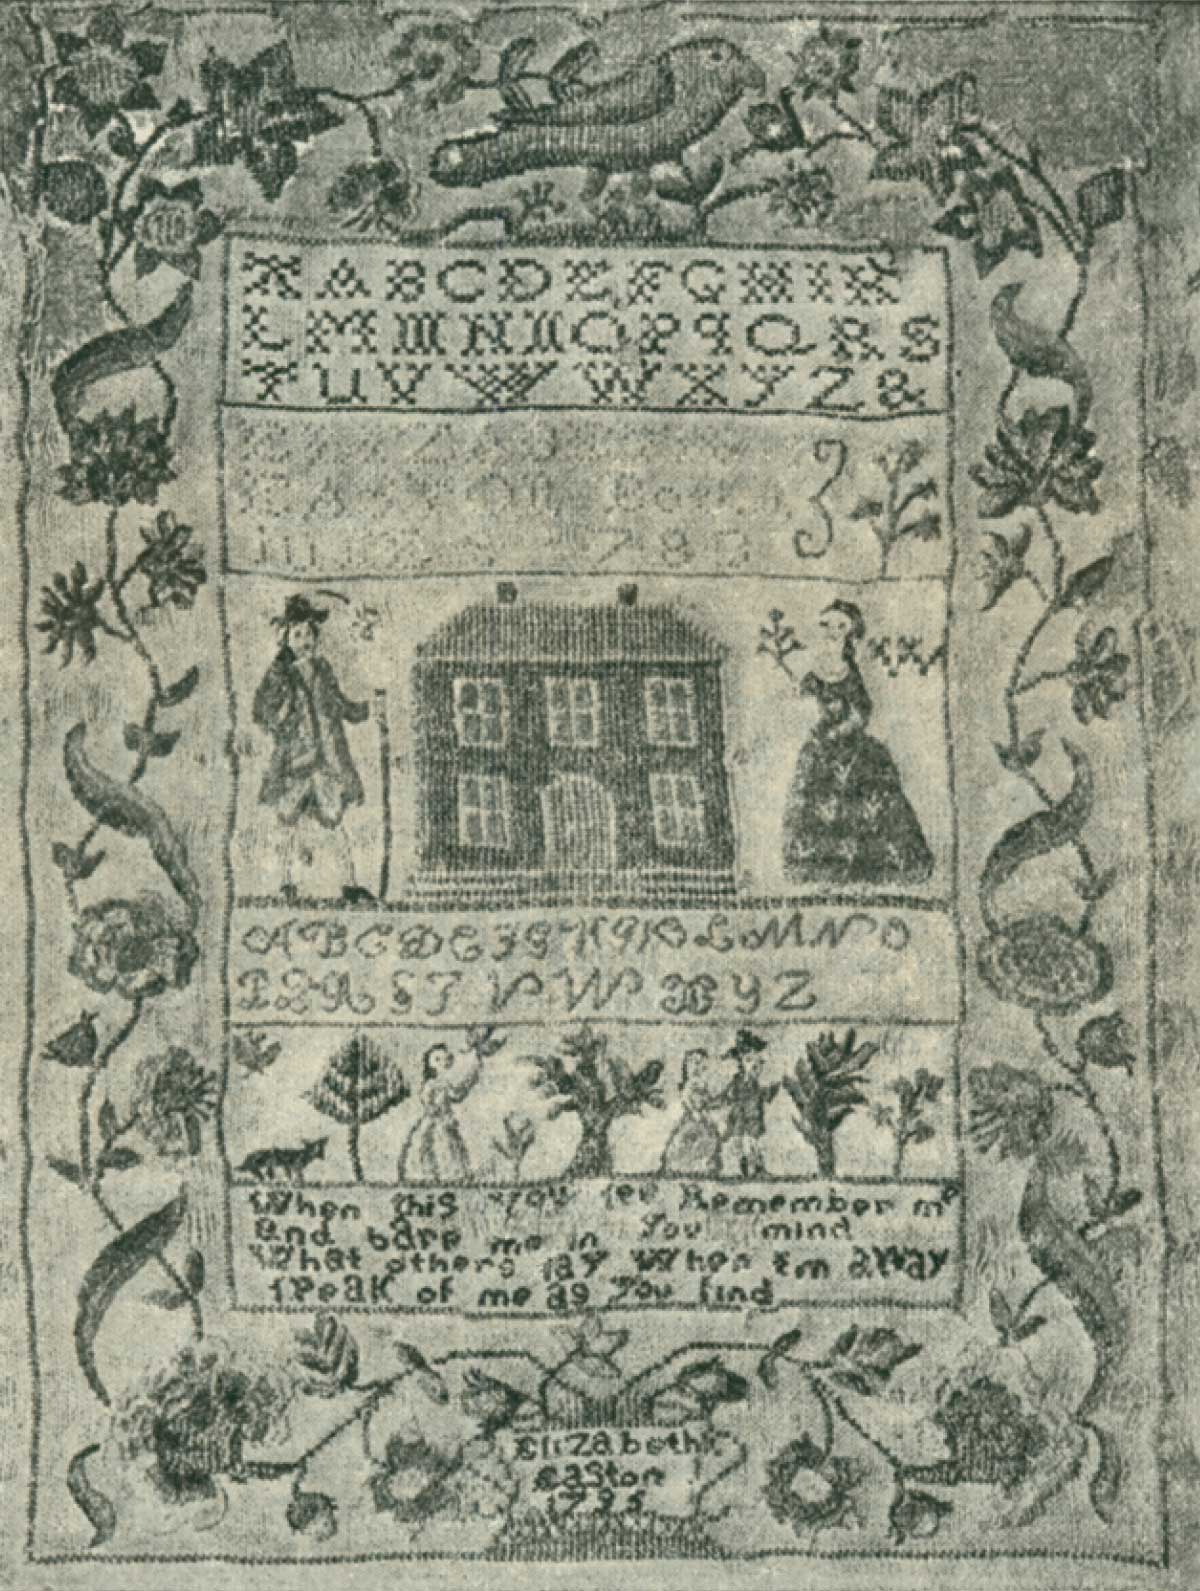 A A B C D E F G H I K
L M M N N O P q Q R S
T U V W W X Y Z &
Easton
178
A B C D E F G H I K L M N O
P Q R S T V W X Y Z
When this you see Remember me
and bare me in You mind
What others say When Em aWay
speak of me as You find
Elizabeth
Easton
1795